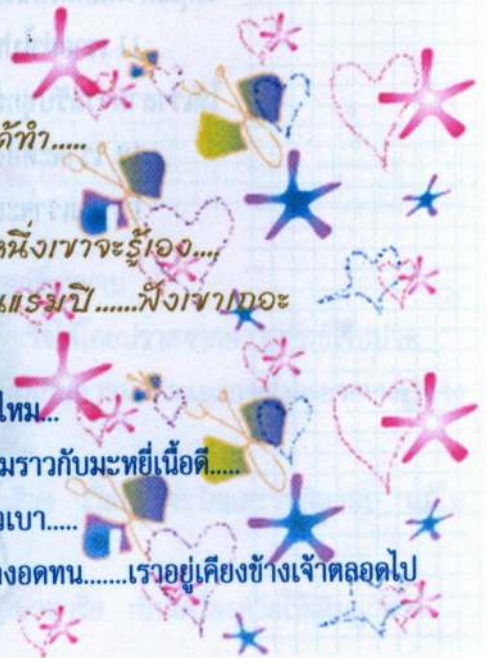 ด้ทำ.....
หนึ่งเขาจะรู้เอง....
นแรมปี......ฟังเขาเถอะ
ไหม...
มราวกับมะหยี่เนื้อดี.....
วเบา.....
งอดทน.......เราอยู่เคียงข้างเจ้าตลอดไป